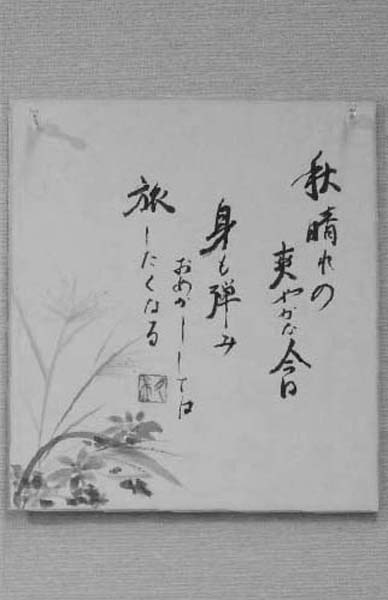 秋晴れの
爽やかな今日
身も弾み
おめかししては
旅したくなる